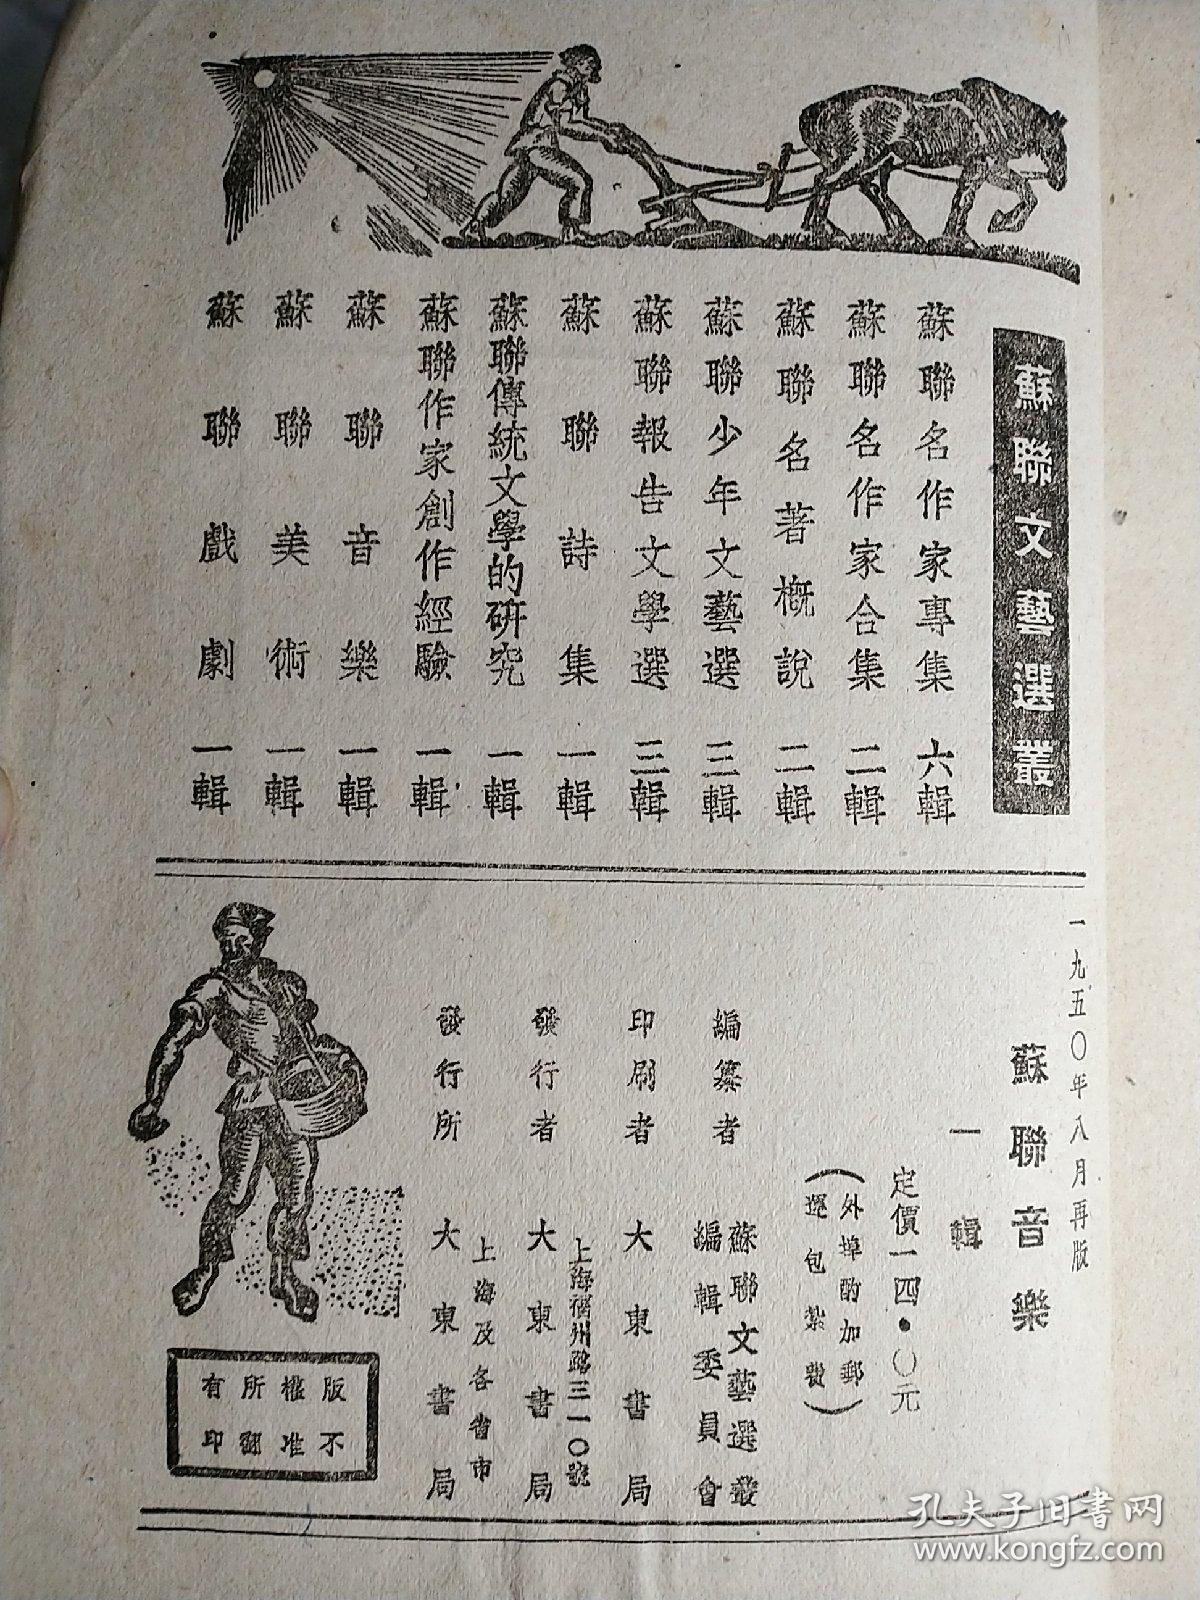 蘇聯文藝選叢
蘇聯名作家專集 六輯
蘇聯名作家合集 二輯
蘇聯名著概說 二輯
蘇聯少年文藝選 三輯
蘇聯報告文學選 三輯
蘇聯詩集 一輯
蘇聯傳統文學的研究 一輯
蘇聯作家創作經驗 一輯
蘇聯音樂 一輯
蘇聯美術 一輯
蘇聯戲劇 一輯
一九五〇年八月再版
蘇聯音樂
一輯
定價一四•〇元
(外埠酌加郵
運包紮費)
編纂者 蘇聯文藝選叢
編輯委員會
印刷者 大東書局
上海福州路三一〇號
發行者 大東書局
上海及各省市
發行所 大東書局
版權所有
不准翻印
孔夫子旧书网
www.kongfz.com